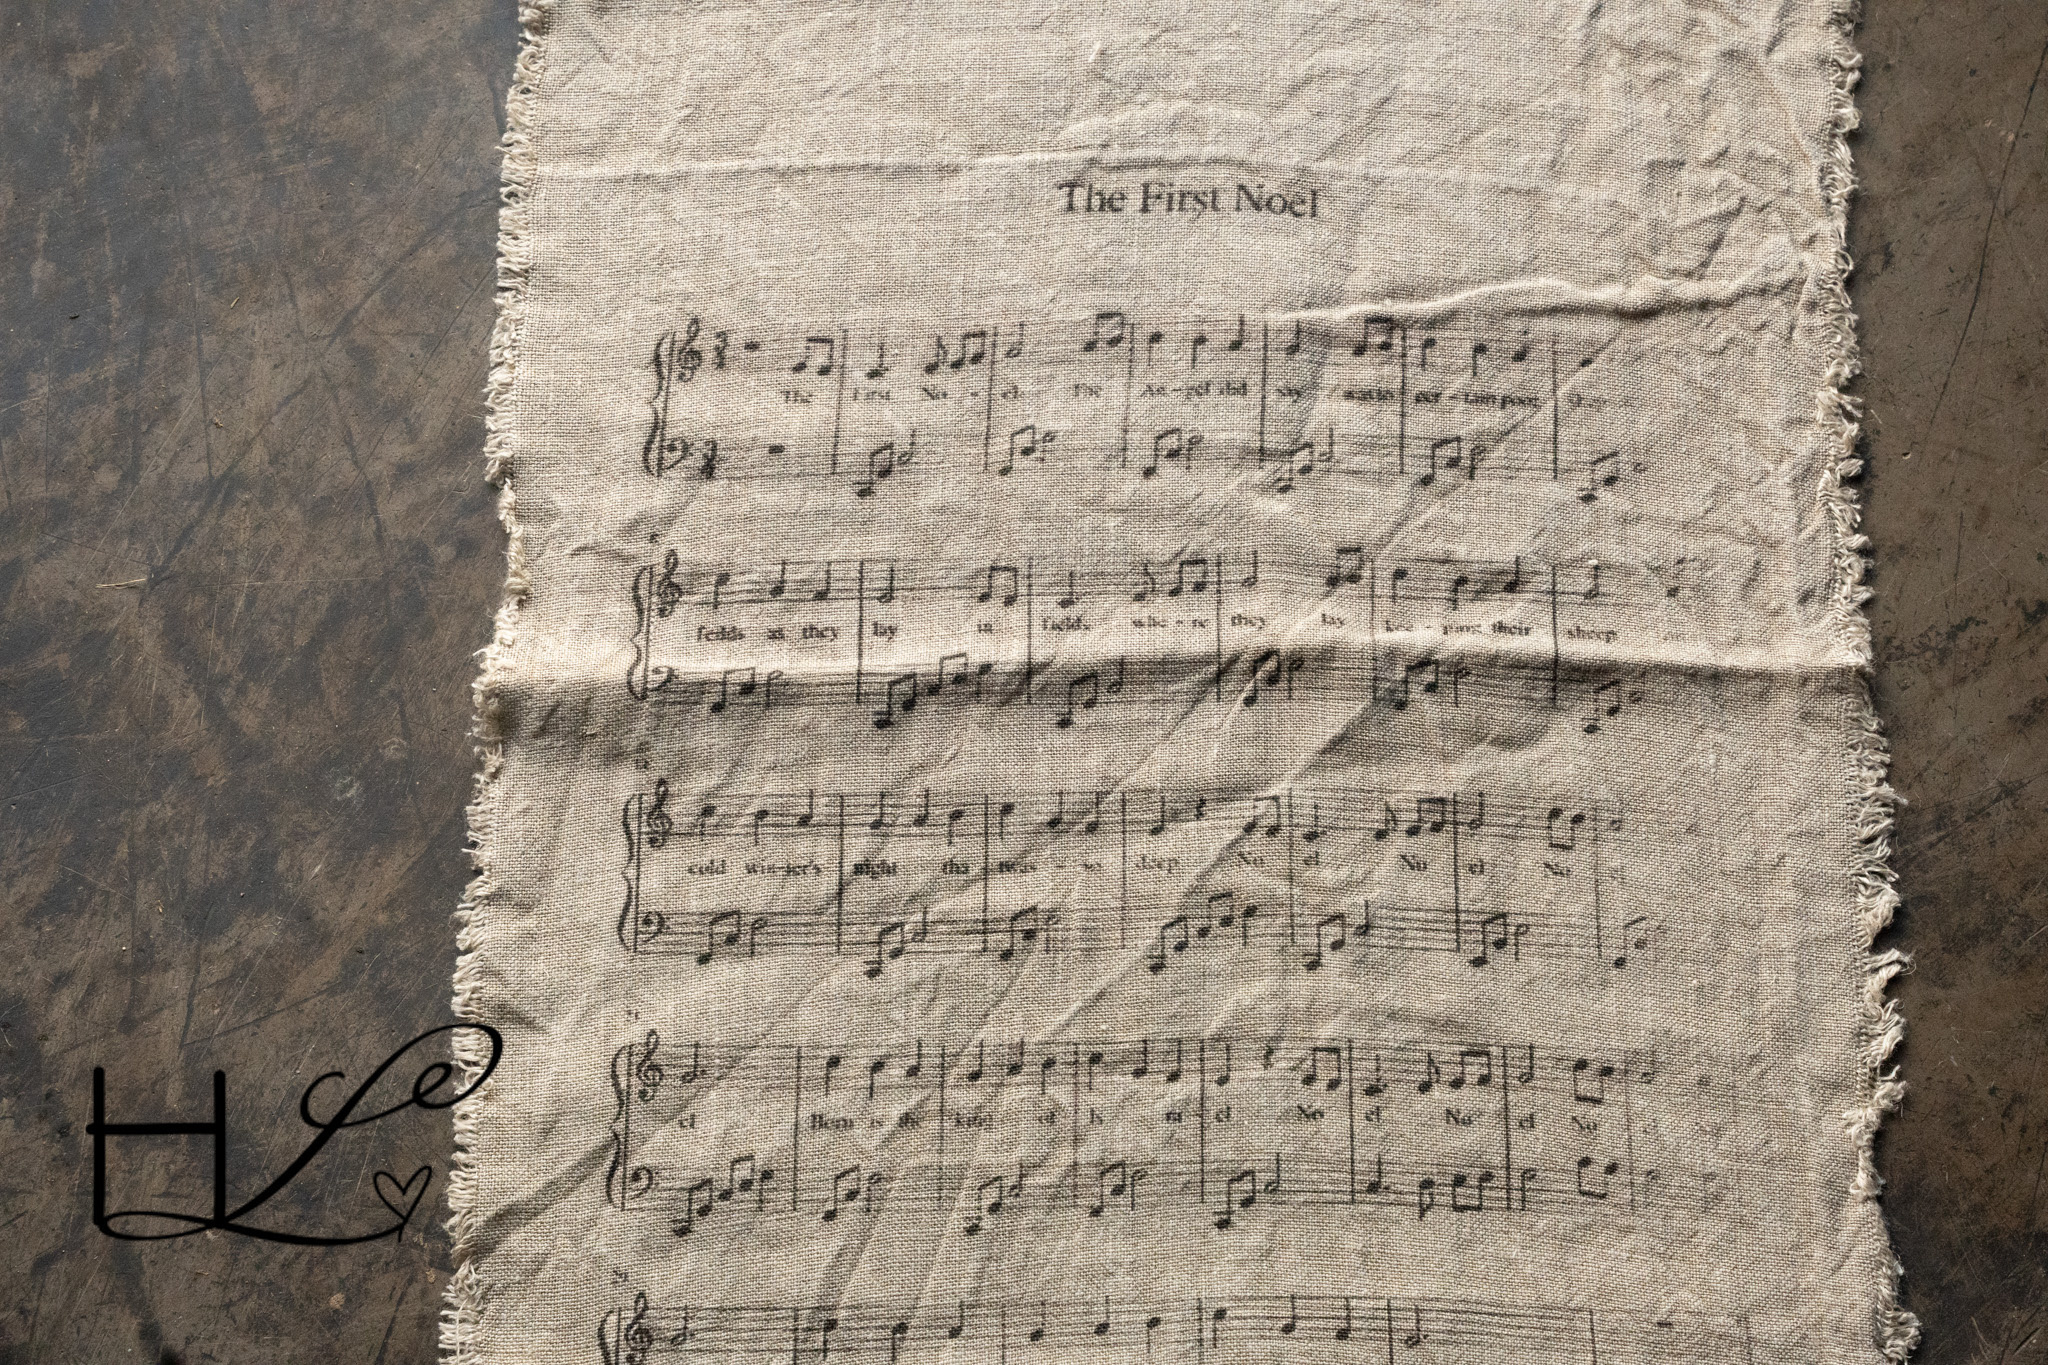 The First Noel
The First No - el. The An - gel did say was to cer - tain poor
feilds as they lay in fields, whe - re they lay kee - ping their sheep
cold win - ter's night tha twas - so deep. No el No el No el
el Born is the king of Is ra - el No el No el No el
H